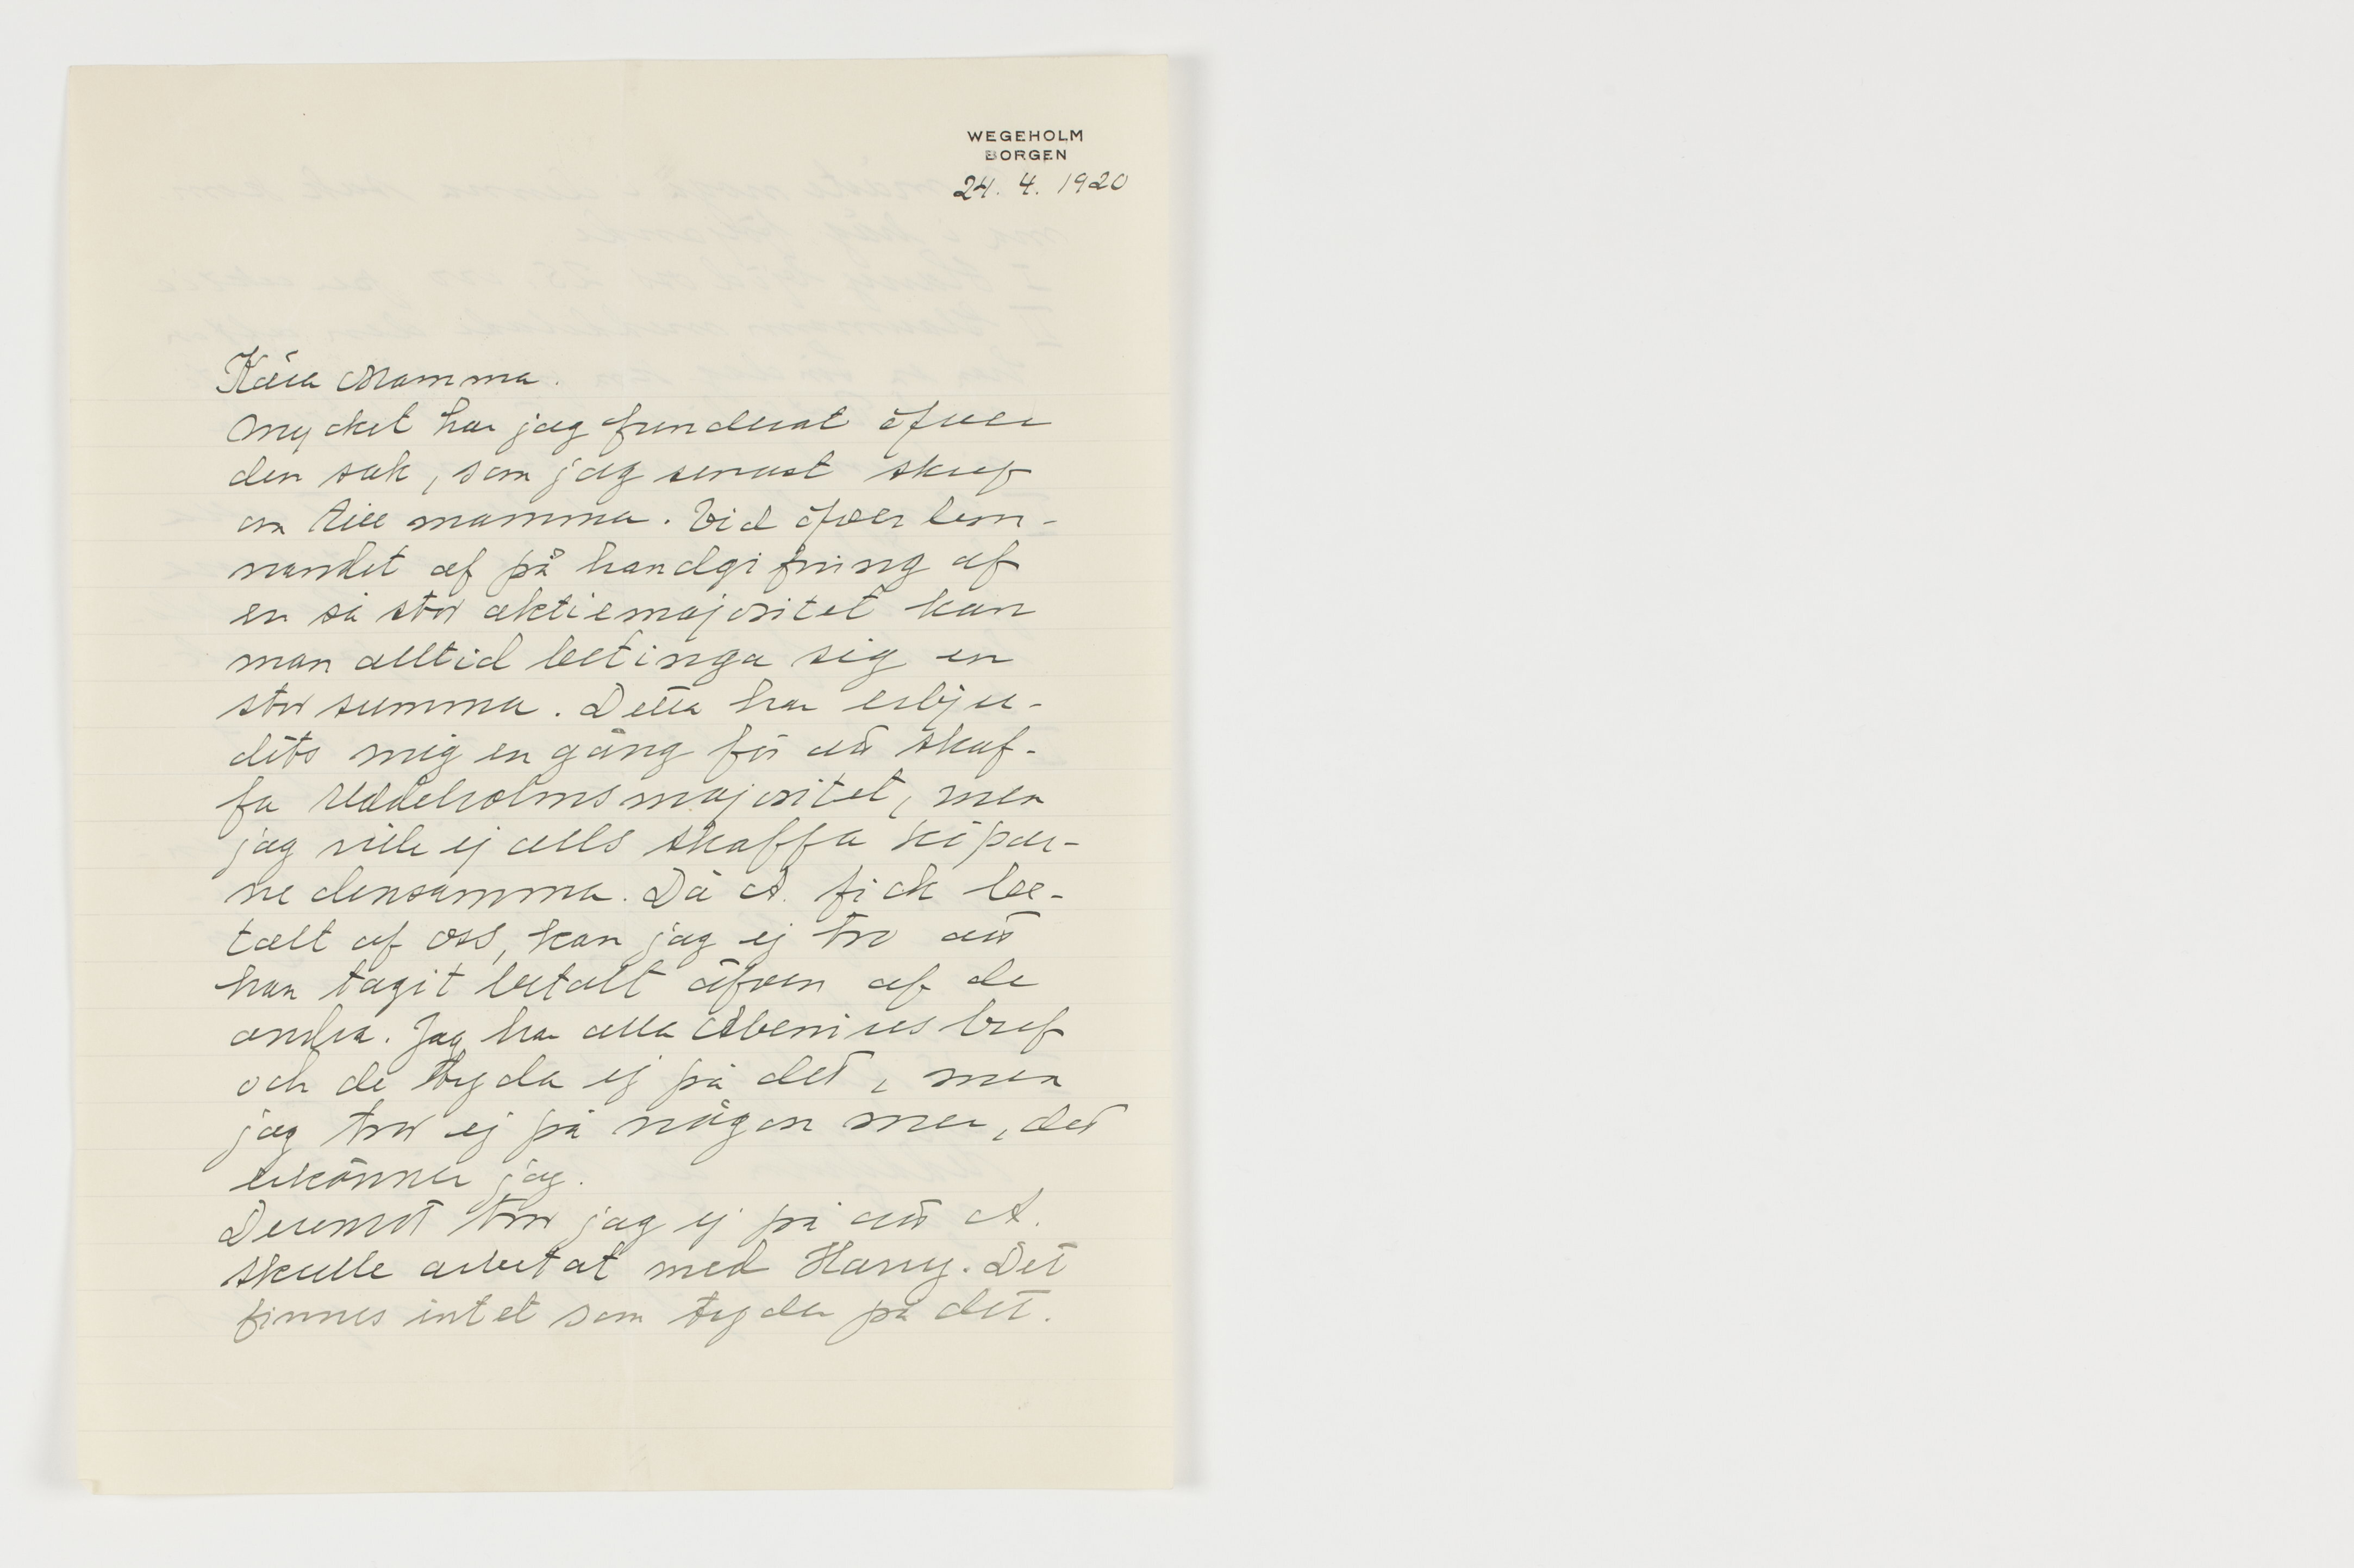 WEGEHOLM
BORGEN
24. 4. 1920
Kära Mamma.
Mycket har jag funderat öfver
den sak, som jag senast skref
om till mamma. Vid öfverlem-
nandet af på handgifning af
en så stor aktiemajoritet kan
man alltid betinga sig en
stor summa. Detta har erbju-
dits mig en gång för att skaf-
fa Uddeholmsmajoritet, men
jag ville ej alls skaffa köpar-
ne densamma. Då A. fick be-
talt af oss, kan jag ej tro att
han tagit betalt äfven af de
andra. Jag har alla Abenius bref
och de tyda ej på det, men
jag tror ej på någon mer, det
erkänner jag.
Deremot tror jag ej på att A.
skulle arbetat med Harry. Det
finnes intet som tyder på det.